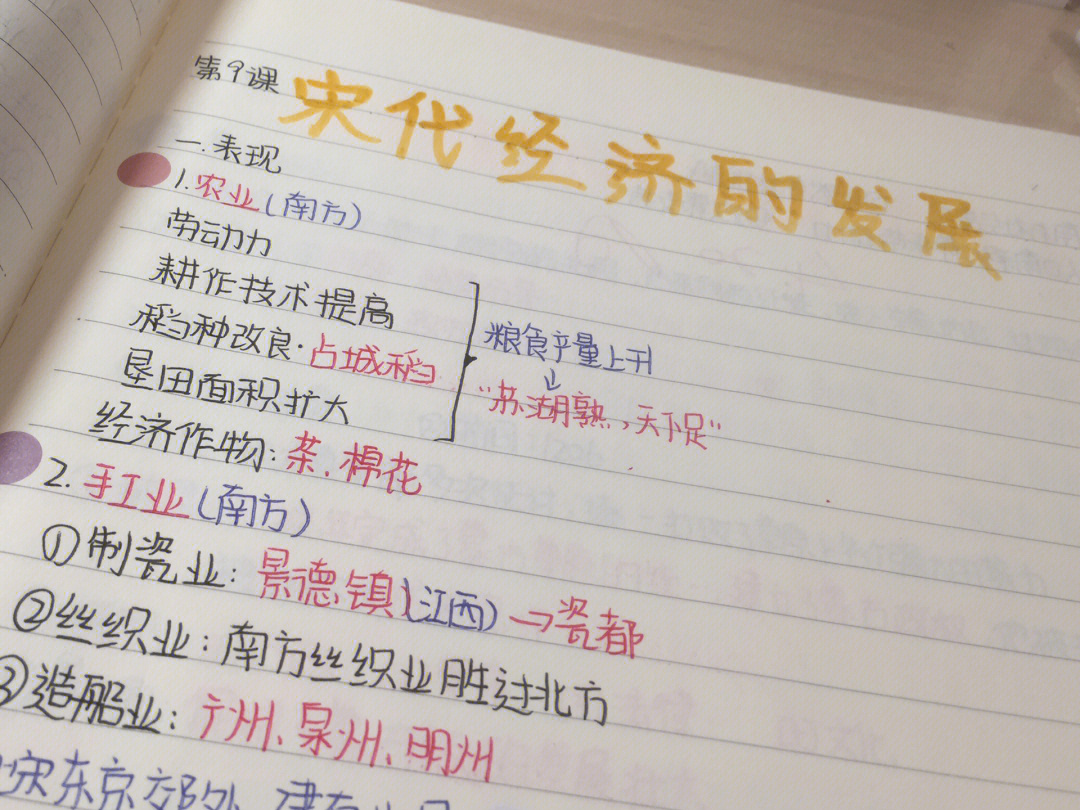 第9课 宋代经济的发展
一.表现
1.农业(南方)
劳动力
耕作技术提高
稻种改良·占城稻
垦田面积扩大
粮食产量上升
↓
“苏湖熟,天下足”
经济作物:茶、棉花
2.手工业(南方)
①制瓷业:景德镇(江西)→瓷都
②丝织业:南方丝织业胜过北方
③造船业:广州、泉州、明州
宋东京郊外